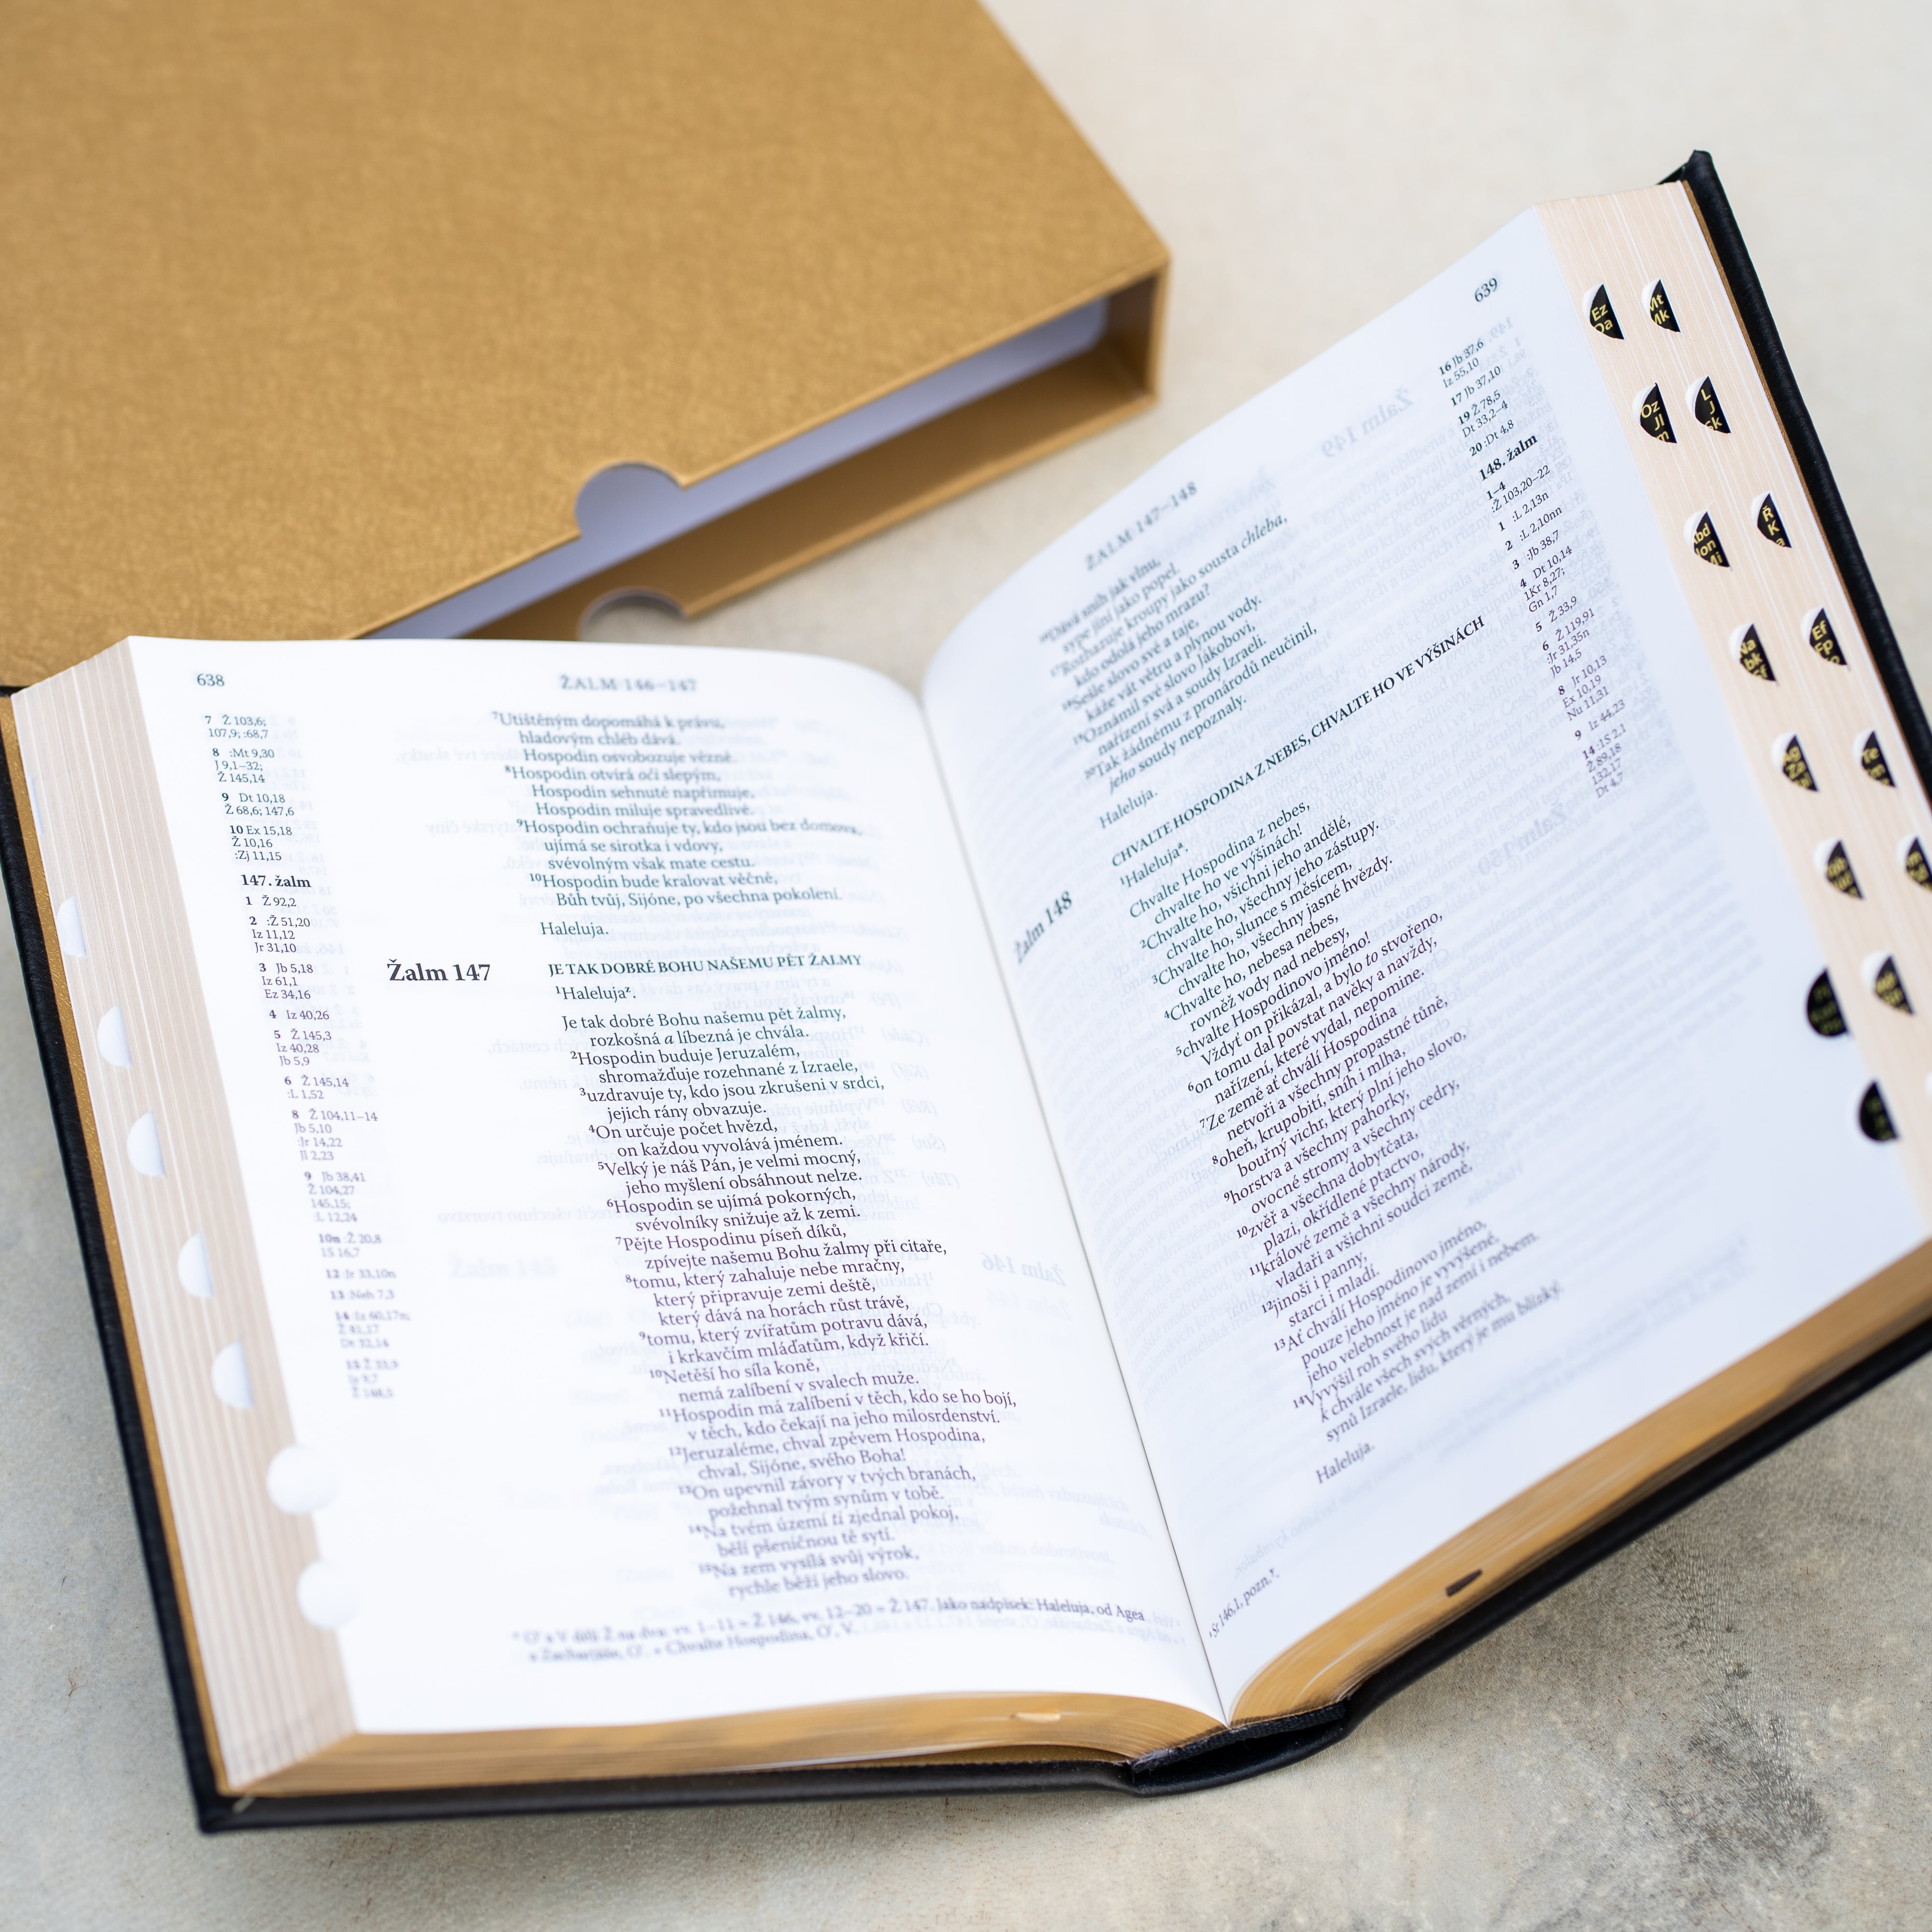 638
ŽALM 146–147
7 Ž 103,6;
107,9; :68,7
8 :Mt 9,30
J 9,1–32;
Ž 145,14
9 Dt 10,18
Ž 68,6; 147,6
10 Ex 15,18
Ž 10,16
:Zj 11,15
147. žalm
1 Ž 92,2
2 :Ž 51,20
Iz 11,12
Jr 31,10
3 Jb 5,18
Iz 61,1
Ez 34,16
4 Iz 40,26
5 Ž 145,3
Iz 40,28
Jb 5,9
6 Ž 145,14
:L 1,52
8 Ž 104,11–14
Jb 5,10
:Jr 14,22
Jl 2,23
9 Jb 38,41
Ž 104,27
145,15;
:L 12,24
10n :Ž 20,8
1S 16,7
12 :Jr 33,10n
13 :Neh 7,3
14 :Iz 60,17n;
Ž 81,17
Dt 32,14
7Utištěným dopomáhá k právu,
hladovým chléb dává.
Hospodin osvobozuje vězně.
8Hospodin otvírá oči slepým,
Hospodin sehnuté napřimuje,
Hospodin miluje spravedlivé.
9Hospodin ochraňuje ty, kdo jsou bez domova,
ujímá se sirotka i vdovy,
svévolným však mate cestu.
10Hospodin bude kralovat věčně,
Bůh tvůj, Sijóne, po všechna pokolení.
Haleluja.
Žalm 147
JE TAK DOBRÉ BOHU NAŠEMU PĚT ŽALMY
1Halelujaz.
Je tak dobré Bohu našemu pět žalmy,
rozkošná a líbezná je chvála.
2Hospodin buduje Jeruzalém,
shromažďuje rozehnané z Izraele,
3uzdravuje ty, kdo jsou zkrušeni v srdci,
jejich rány obvazuje.
4On určuje počet hvězd,
on každou vyvolává jménem.
5Velký je náš Pán, je velmi mocný,
jeho myšlení obsáhnout nelze.
6Hospodin se ujímá pokorných,
svévolníky snižuje až k zemi.
7Pějte Hospodinu píseň díků,
zpívejte našemu Bohu žalmy při citaře,
8tomu, který zahaluje nebe mračny,
který připravuje zemi deště,
který dává na horách růst trávě,
9tomu, který zvířatům potravu dává,
i krkavčím mláďatům, když křičí.
10Netěší ho síla koně,
nemá zalíbení v svalech muže.
11Hospodin má zalíbení v těch, kdo se ho bojí,
v těch, kdo čekají na jeho milosrdenství.
12Jeruzaléme, chval zpěvem Hospodina,
chval, Sijóne, svého Boha!
13On upevnil závory v tvých branách,
požehnal tvým synům v tobě.
14Na tvém území ti zjednal pokoj,
bělí pšeničnou tě sytí.
15Na zem vysílá svůj výrok,
rychle běží jeho slovo.
z O' a V dělí Ž na dva: vv. 1–11 = Ž 146, vv. 12–20 = Ž 147. Jako nadpisek: Haleluja, od Agea
a Zacharjáše, O'. • Chvalte Hospodina, O', V.
639
ŽALM 147–148
16Dává sníh jak vlnu,
sype jíní jako popel.
17Rozhazuje kroupy jako sousta chleba,
kdo odolá jeho mrazu?
18Sešle slovo své a taje,
káže vát větru a plynou vody.
19Oznámil své slovo Jákobovi,
nařízení svá a soudy Izraeli.
20Tak žádnému z pronárodů neučinil,
jeho soudy nepoznaly.
Haleluja.
Žalm 148
CHVALTE HOSPODINA Z NEBES, CHVALTE HO VE VÝŠINÁCH
1Halelujaa.
Chvalte Hospodina z nebes,
chvalte ho ve výšinách!
2Chvalte ho, všichni jeho andělé,
chvalte ho, všechny jeho zástupy.
3Chvalte ho, slunce s měsícem,
chvalte ho, všechny jasné hvězdy.
4Chvalte ho, nebesa nebes,
rovněž vody nad nebesy,
5chvalte Hospodinovo jméno!
Vždyť on přikázal, a bylo to stvořeno,
6on tomu dal povstat navěky a navždy,
nařízení, které vydal, nepomine.
7Ze země ať chválí Hospodina
netvoři a všechny propastné tůně,
8oheň, krupobití, sníh i mlha,
bouřný vichr, který plní jeho slovo,
9horstva a všechny pahorky,
ovocné stromy a všechny cedry,
10zvěř a všechna dobytčata,
plazi, okřídlené ptactvo,
11králové země a všechny národy,
vladaři a všichni soudci země,
12jinoši i panny,
starci i mladí.
13Ať chválí Hospodinovo jméno,
pouze jeho jméno je vyvýšené,
jeho velebnost je nad zemí i nebem.
14Vyvýšil roh svého lidu
k chvále všech svých věrných,
synů Izraele, lidu, který je mu blízký.
Haleluja.
Sr 146,1, pozn.
16 Jb 37,6
Iz 55,10
17 Jb 37,10
19 Ž 78,5
Dt 33,2–4
20 :Dt 4,8
148. žalm
1–4
:Ž 103,20–22
1 :L 2,13n
2 :L 2,10nn
3 :Jb 38,7
4 Dt 10,14
1Kr 8,27;
Gn 1,7
5 Ž 33,9
6 Ž 119,91
:Jr 31,35n
Jb 14,5
8 Jr 10,13
Ex 10,19
Nu 11,31
9 Iz 44,23
14 :1S 2,1
Ž 89,18
132,17
Dt 4,7
Ez
Da
Mt
Mk
Oz
Jl
L
J
Sk
Abd
Jon
Mi
Ř
K
Ga
Ef
Fp